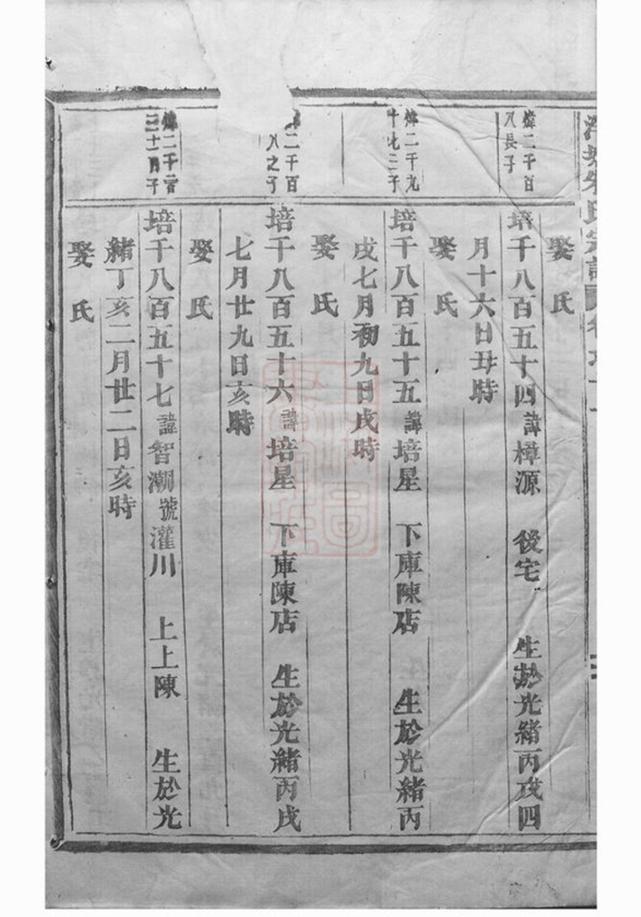 娶氏
煒二千百
八長子
培千八百五十四諱樟源 後宅 生於光緒丙戌四
月十六日丑時
娶氏
煒二千九
十七二子
培千八百五十五諱培星 下庫陳店 生於光緒丙
戌七月初九日戌時
娶氏
二千百
八之子
培千八百五十六諱培星 下庫陳店 生於光緒丙戌
七月廿九日亥時
娶氏
煒二千
三十子
培千八百五十七諱智潮號灌川 上上陳 生於光
緒丁亥二月廿二日亥時
娶氏